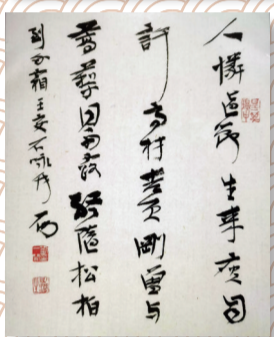 人憐直節生來瘦自
許高材老更剛曾与
蒿藜同雨露終隨松柏
到冰霜王安石咏竹